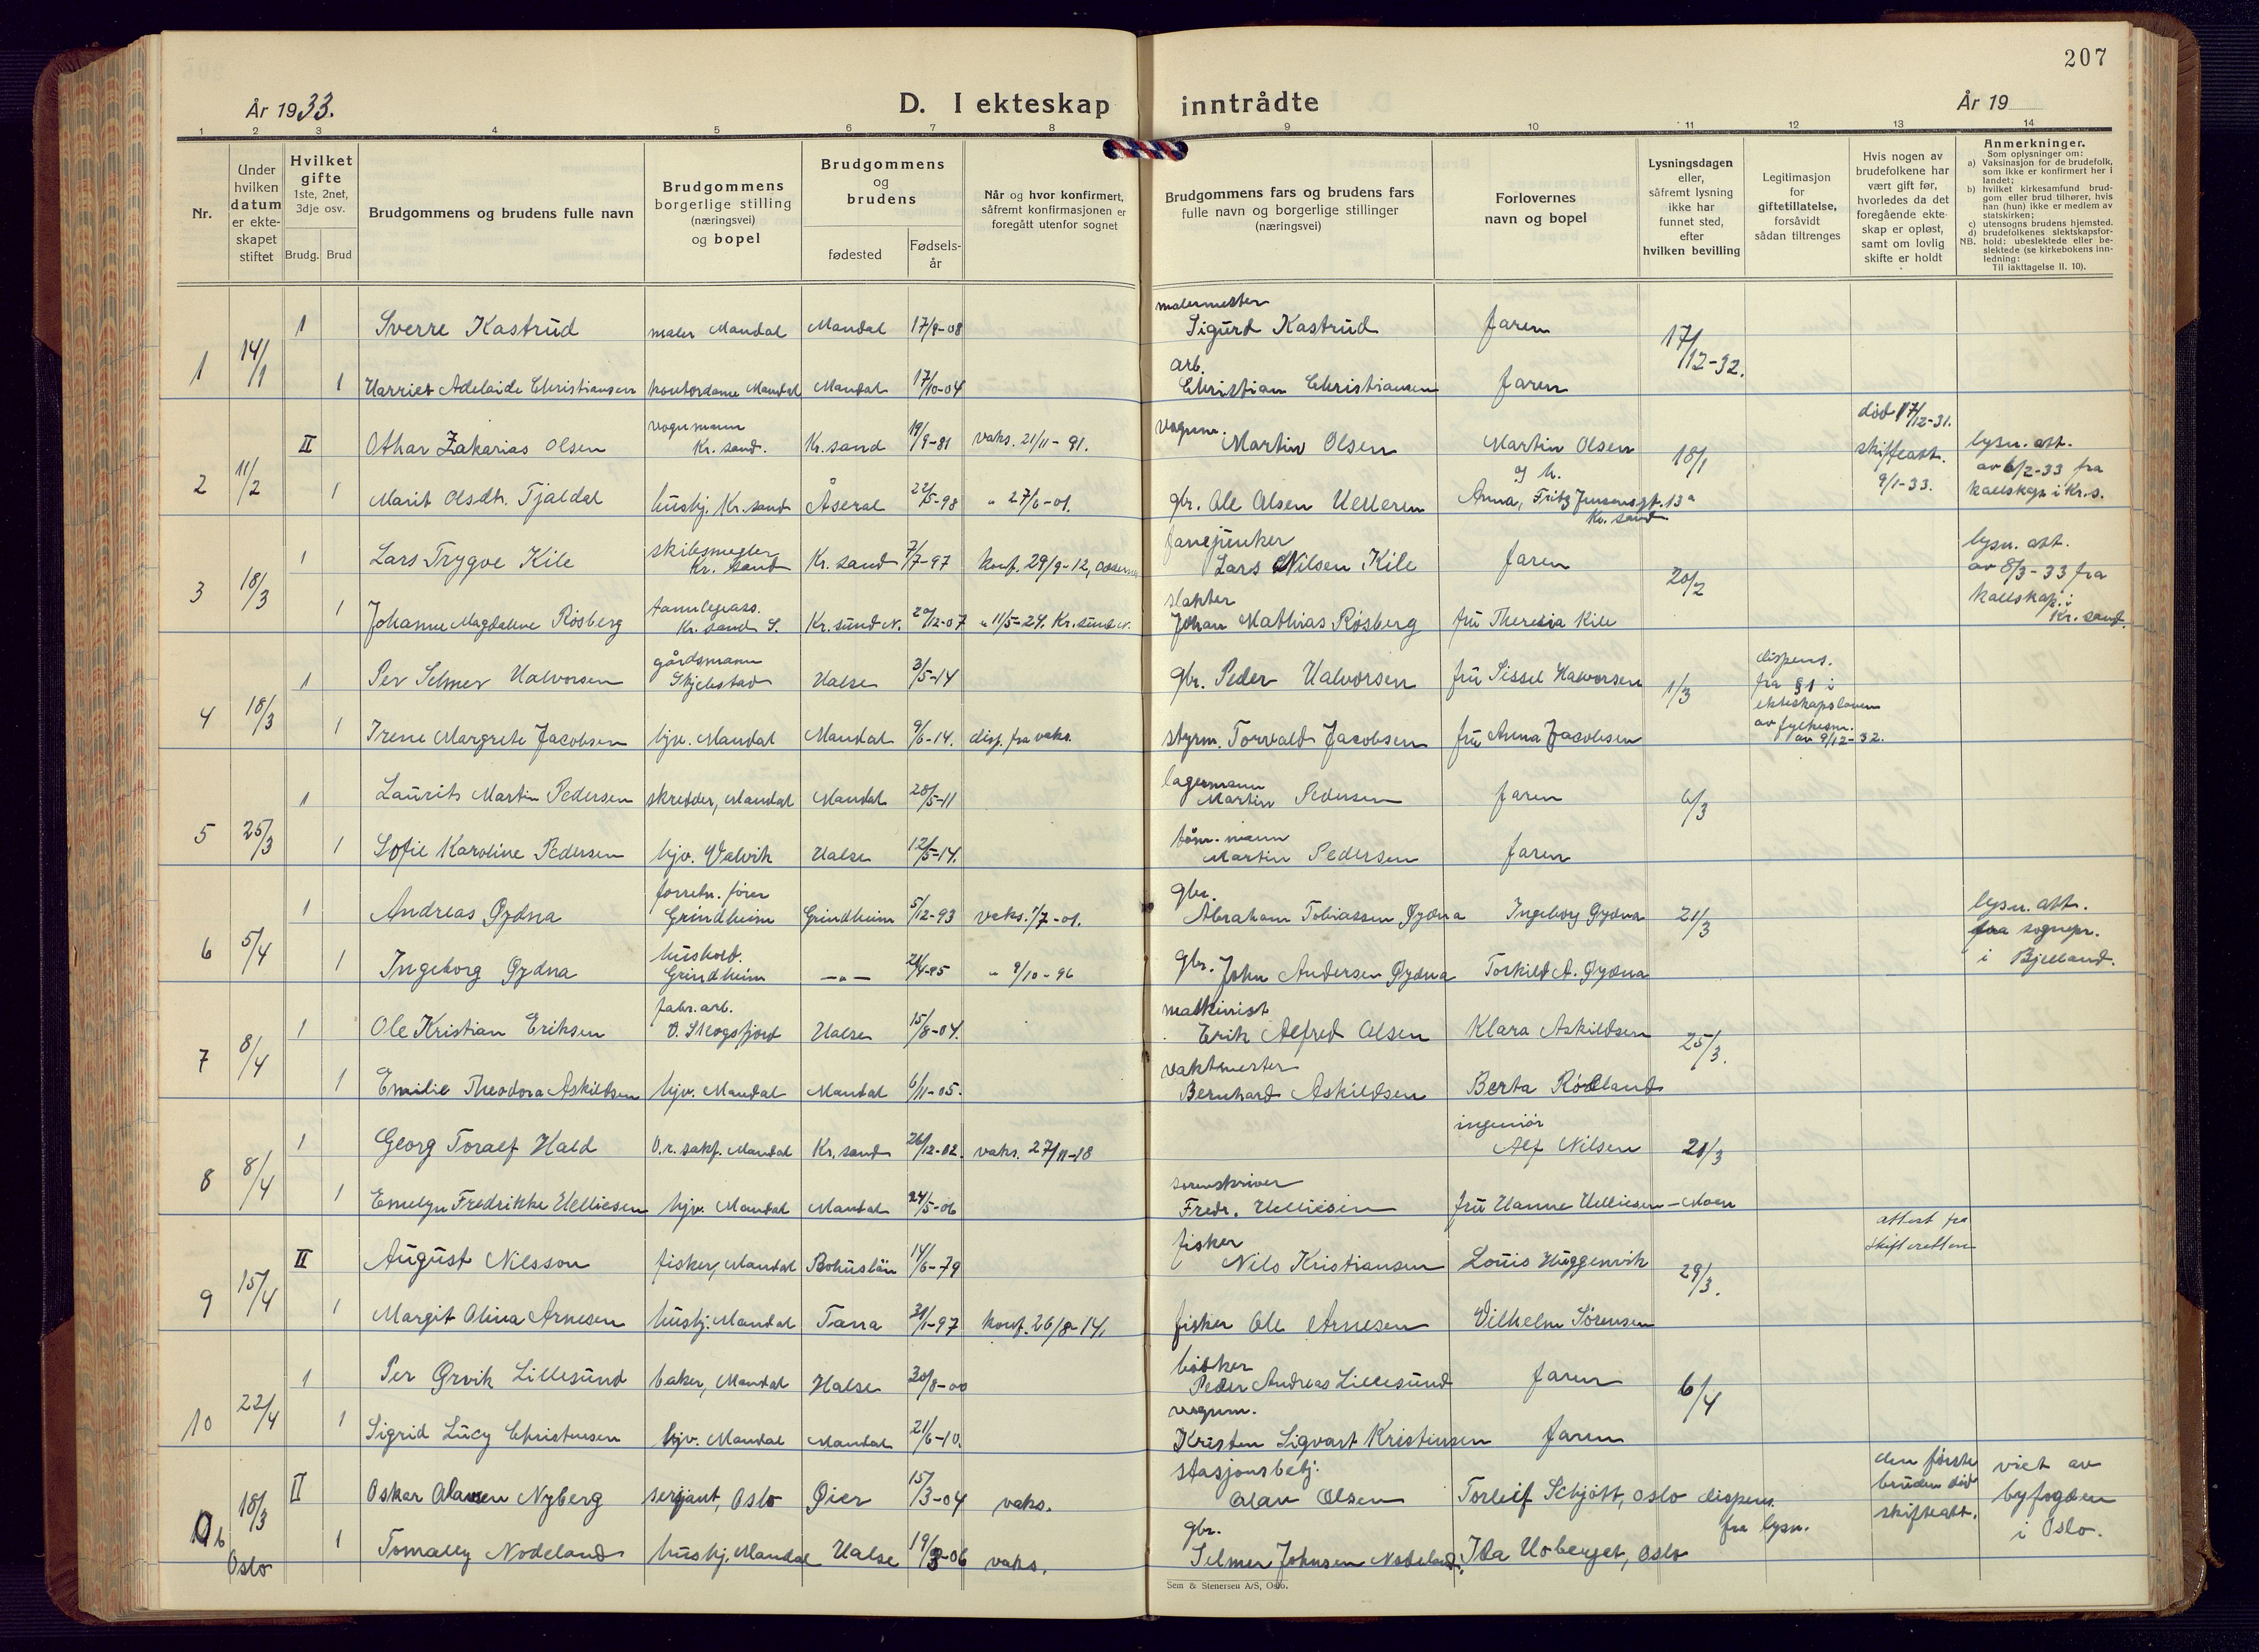 207
År 1933.
D. I ekteskap inntrådte
År 19
1 2 3 4 5 6 7 8 9 10 11 12 13 14
Nr.
Under hvilken datum er ekte-skapet stiftet
Hvilket gifte 1ste, 2net, 3dje osv.
Brudg. Brud
Brudgommens og brudens fulle navn
Brudgommens borgerlige stilling (næringsvei) og bopel
Brudgommens og brudens
fødested
Fødsels-år
Når og hvor konfirmert, såfremt konfirmasjonen er foregått utenfor sognet
Brudgommens fars og brudens fars fulle navn og borgerlige stillinger (næringsvei)
Forlovernes navn og bopel
Lysningsdagen eller, såfremt lysning ikke har funnet sted, efter hvilken bevilling
Legitimasjon for giftetillatelse, forsåvidt sådan tiltrenges
Hvis nogen av brudefolkene har vært gift før, hvorledes da det foregående ekte-skap er opløst, samt om lovlig skifte er holdt
Anmerkninger.
Som oplysninger om:
a) Vaksinasjon for de brudefolk, som ikke er konfirmert her i landet;
b) hvilket kirkesamfund brud-gom eller brud tilhører, hvis han (hun) ikke er medlem av statskirken;
c) utensogns brudens hjemsted.
d) brudefolkenes slektskapsfor-hold: ubeslektede eller be-slektede (se kirkebokens inn-ledning:
NB.
Til iakttagelse II. 10).
1 14/1 1 Sverre Kastrud maler Mandal Mandal 17/8-08 malermester Sigurd Kastrud faren 17/12-32.
1 Harriet Adelaide Christiansen kontordame Mandal Mandal 17/10-04 arb. Christian Christiansen faren
2 11/2 II Othar Zakarias Olsen vognmann Kr. sand. Kr. sand 19/9-81 vaks. 21/11-91. vognm. Martin Olsen Martin Olsen og h. 18/1 død 17/12-31. skifteatt. 9/1-33. lysn. att. av 6/2-33 fra kallskap. i Kr.s.
1 Marit Olsdtr. Tjaldal husbj. Kr. sand Åseral 22/5-98 " 27/6-01. gbr. Ole Olsen Anna, Fritz Jensensgt. 13a Kr. sand
3 18/3 1 Lars Trygve Kile skibsmegler Kr. sand Kr. sand 7/7-97 konf. 29/9-12, fanejunker Lars Nilsen Kile faren 20/2 lysn. att. av 8/3-33 fra kallskap. i Kr. sand.
1 Johanne Magdalene Rosberg tannlegeass. Kr. sand S. Kr. sund N. 20/12-07 " 11/5-24. Kr. sund N. slakter Johan Mathias Rosberg fru Theresia Kile
4 18/3 1 Per Selmer Halvorsen gårdsmann Skjebstad Halse 3/5-14 gbr. Peder Halvorsen fru Sissel Halvorsen 1/3 dispens. fra §1 i ekteskapsloven av fylkesm. av 9/12-32.
1 Irene Margrete Jacobsen hjv. Mandal Mandal 9/6-14. disp. fra vaks. styrm. Torvald Jacobsen fru Anna Jacobsen
5 25/3 1 Laurits Martin Pedersen skredder, Mandal Mandal 28/5-11 lagermann Martin Pedersen faren 6/3
1 Sofie Karoline Pedersen hjv. Valvik Halse 12/5-14. tømr. mann Martin Pedersen faren
6 5/4 1 Andreas Gydna forretn. fører Grindheim Grindheim 5/12-93 vaks. 1/7-01. gbr. Abraham Tobiassen Gydna Ingeborg Gydna 21/3 lysn. att. fra sognepr. i Bjelland.
1 Ingeborg Gydna hushold. Grindheim —"— " 9/10-96 gbr. John Andersen Gydna Torkild A. Gydna
7 8/4 1 Ole Kristian Eriksen fabr. arb. O. Skogsfjord Halse 15/8-04. maskinist Erik Alfred Olsen Klara Askildsen 25/3.
1 Emilie Theodora Askildsen hjv. Mandal Mandal 6/11-05. vaktmester Bernhard Askildsen Berta Rødland
8 8/4 1 Georg Toralf Hald O.r. sakf. Mandal Kr. sand 26/12-02. vaks. 27/11-18 ingeniør Alf Nilsen 21/3
1 Emelyn Fredrikke Helliesen hjv. Mandal Mandal 24/5-06 sorenskriver Fredr. Helliesen fru Hanne Helliesen-Moen
9 15/4 II August Nilsson fisker, Mandal Bohuslän 14/6-79 fisker Nils Kristiansen Louis Huggenvik 29/3. attest fra skifteretten
1 Margit Olina Arnesen husbj. Mandal Tana 31/1-97 konf. 26/8-14. fisker Ole Arnesen Vilhelm Sørensen
10 22/4 1 Per Ørvik Lillesund baker, Mandal Halse 30/8-00 bøkker Peder Andreas Lillesund faren 6/4
1 Sigrid Lucy Christensen hjv. Mandal Mandal 21/6-10. vognm. Kristen Sigvart Kristensen faren
10b 18/3 Oslo II Oskar Nyberg serjant, Oslo Øier 15/3-04 vaks. stasjonsbetj. Olav Olsen Torleif Schjött, Oslo dispens. fra lysn. den første bruden død skifteatt. viet av byfogden i Oslo.
1 Tomally Nodeland husbj. Mandal Halse 19/3-06 vaks. gbr. Selmer Johnsen Nodeland. Ida Hoberget, Oslo
Sem & Stenersen A/S, Oslo.